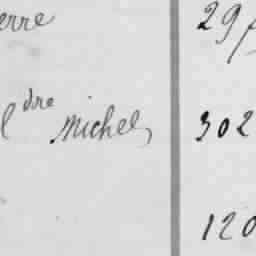 erre 29
l dre Michel, 302
120